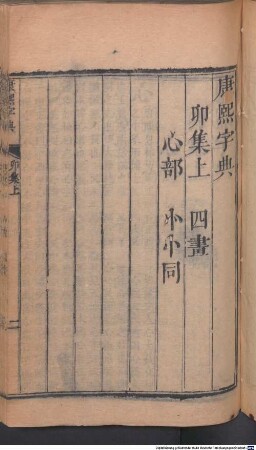 康熙字典
卯集上　四畫
心部　㣺忄同
康熙字典
卯集上